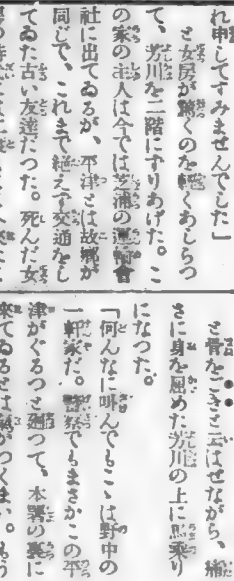 れ申してすみませんでした」
と女房が驚くのを軽くあしらつ
て、芳川を二階にずりあげた。こ
の家の主人は今では芝浦の運輸會
社に出てゐるが、平津とは故郷が
同じで、これまで絶えず交通をし
てゐた古い友達だつた。死んだ女
と骨をごきごき云はせながら、
さに身を屈めた芳川の上に馬乗り
になつた。
「何んなに叫んでもこゝは野中の
一軒家だ。警察でもまさかこの平
津がぐるつと廻つて、本署の裏に
來てゐるとは氣がつくまい。もう